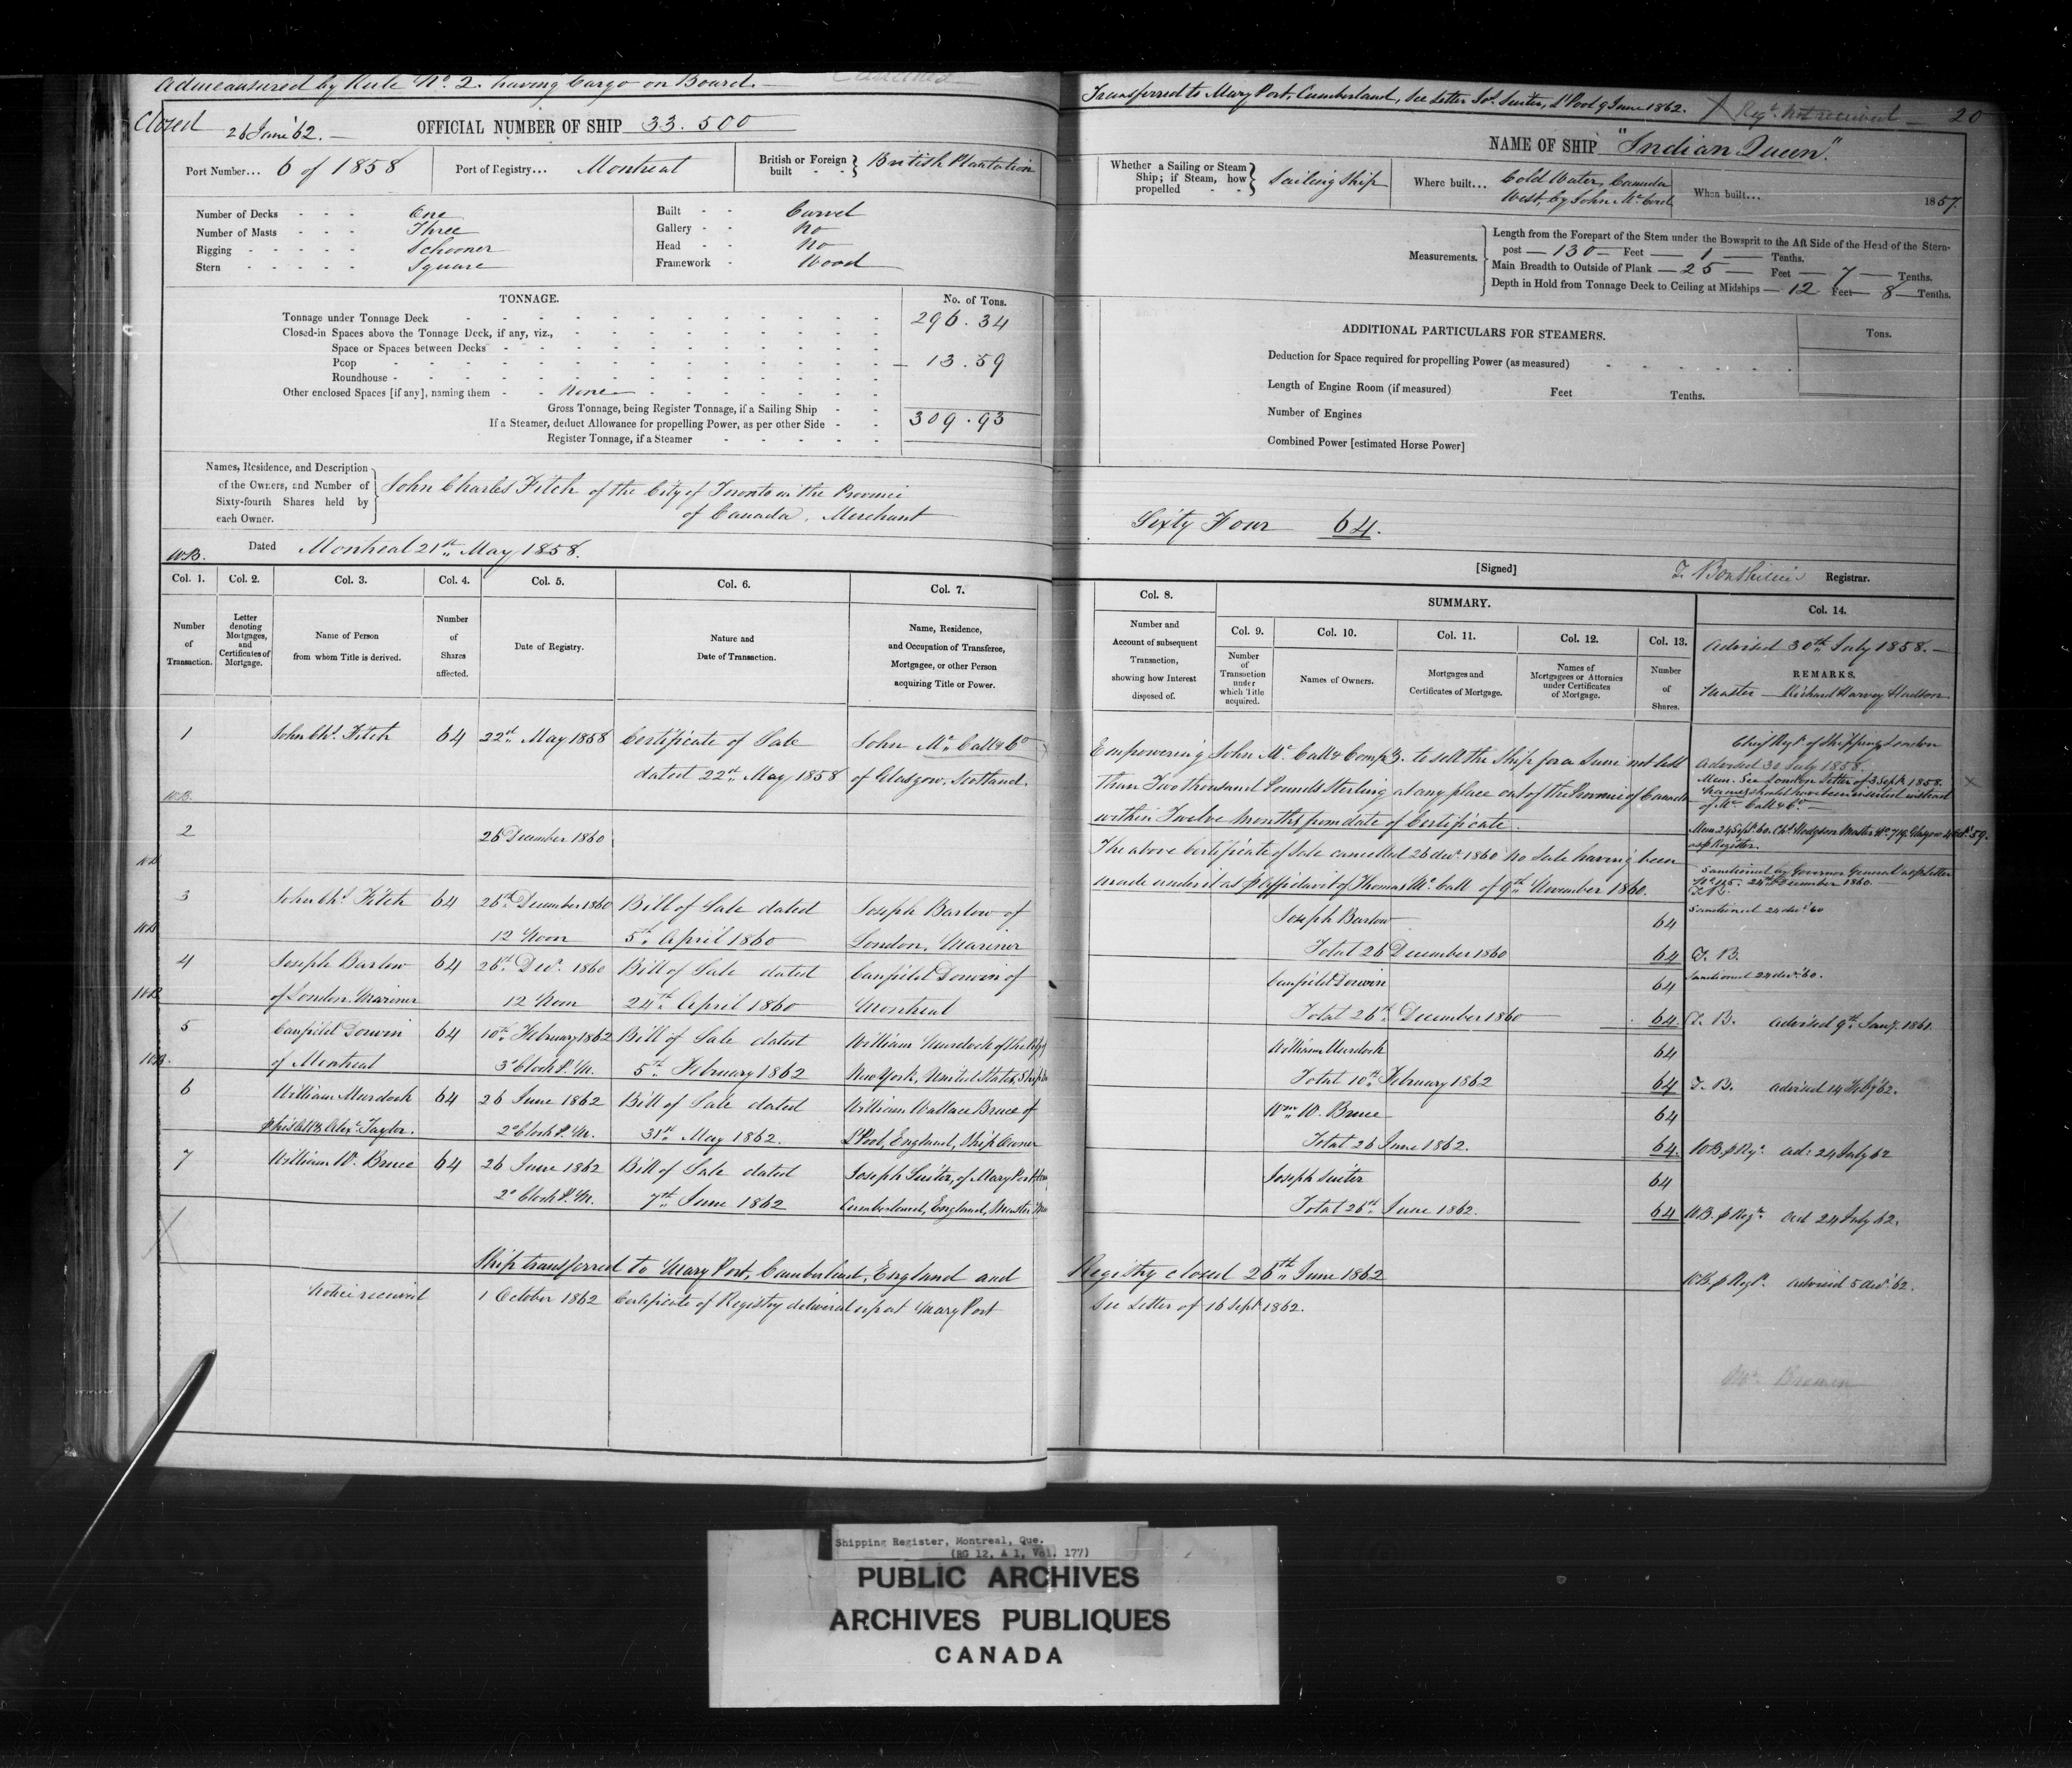 Admeasured by Rule No. 2. having Cargo on Board.
Closed 26 June '62.
OFFICIAL NUMBER OF SHIP 33.500
Port Number... 6 of 1858 Port of Registry... Montreal British or Foreign built British Plantation
Number of Decks One
Number of Masts Three
Rigging Schooner
Stern Square
Built Carvel
Gallery No
Head No
Framework Wood
TONNAGE. No. of Tons.
Tonnage under Tonnage Deck 296.34
Closed-in Spaces above the Tonnage Deck, if any, viz.,
Space or Spaces between Decks
Poop 13.59
Roundhouse
Other enclosed Spaces [if any], naming them None
Gross Tonnage, being Register Tonnage, if a Sailing Ship 309.93
If a Steamer, deduct Allowance for propelling Power, as per other Side
Register Tonnage, if a Steamer
Names, Residence, and Description of the Owners, and Number of Sixty-fourth Shares held by each Owner.
John Charles Fitch of the City of Toronto in the Province
of Canada, Merchant
W.B. Dated Montreal 21st May 1858.
Col. 1. Col. 2. Col. 3. Col. 4. Col. 5. Col. 6. Col. 7.
Number of Transaction.
Letter denoting Mortgages, and Certificates of Mortgage.
Name of Person from whom Title is derived.
Number of Shares affected.
Date of Registry.
Nature and Date of Transaction.
Name, Residence, and Occupation of Transferee, Mortgagee, or other Person acquiring Title or Power.
1 John Chs. Fitch 64 22nd May 1858 Certificate of Sale John Mc Call & Co
dated 22nd May 1858 of Glasgow, Scotland.
W.B.
2 26 December 1860
W.B.
3 John Chs. Fitch 64 26th December 1860 Bill of Sale dated Joseph Barlow of
W.B. 12 Noon 5th April 1860 London, Mariner
4 Joseph Barlow 64 26th Decr. 1860 Bill of Sale dated Canfield Dorwin of
W.B. of London Mariner 12 Noon 24th April 1860 Montreal
5 Canfield Dorwin 64 10th February 1862 Bill of Sale dated William Murdock of the City of
W.B. of Montreal 3 o'Clock P.M. 5th February 1862 New York, United States,
6 William Murdock 64 26 June 1862 Bill of Sale dated William Wallace Bruce of
p his Atty Alexr. Taylor. 2 o'Clock P.M. 31st May 1862. L'Pool, England, Ship Owner
7 William W. Bruce 64 26 June 1862 Bill of Sale dated Joseph Suiter, of Mary Port,
2 o'Clock P.M. 7th June 1862 Cumberland, England, Master
Ship transferred to Mary Port, Cumberland, England and
Notice received 1 October 1862 Certificate of Registry delivered up at Mary Port
Transferred to Mary Port, Cumberland, See Letter Jos. Suiter, L'Pool 9 June 1862. Regr. Not received 20
NAME OF SHIP "Indian Queen".
Whether a Sailing or Steam Ship; if Steam, how propelled Sailing Ship
Where built... Cold Water, Canada
West, by John Mc Cord
When built... 1857.
Measurements.
Length from the Forepart of the Stem under the Bowsprit to the Aft Side of the Head of the Stern-
post 130 Feet 1 Tenths.
Main Breadth to Outside of Plank 25 Feet 7 Tenths.
Depth in Hold from Tonnage Deck to Ceiling at Midships 12 Feet 8 Tenths.
ADDITIONAL PARTICULARS FOR STEAMERS. Tons.
Deduction for Space required for propelling Power (as measured)
Length of Engine Room (if measured) Feet Tenths.
Number of Engines
Combined Power [estimated Horse Power]
Sixty Four 64.
[Signed] Registrar.
Col. 8. SUMMARY. Col. 14.
Col. 9. Col. 10. Col. 11. Col. 12. Col. 13.
Number and Account of subsequent Transaction, showing how Interest disposed of.
Number of Transaction under which Title acquired.
Names of Owners.
Mortgages and Certificates of Mortgage.
Names of Mortgagees or Attornies under Certificates of Mortgage.
Number of Shares.
Advised 30th July 1858.
REMARKS.
Master Richard Harvey Hudson
Empowering John Mc Call & Compy. to sell the Ship for a Sum not less
than Two thousand Pounds Sterling at any place out of the Province of Canada
within Twelve Months from date of Certificate.
Chief Regr. of Shipping London
Advised 30 July 1858.
Mem. See London Letter of 3 Sept. 1858.
Names should have been inserted instead
of Mc Call & Co.
The above Certificate of Sale cancelled 26 Decr. 1860 no Sale having been
made under it as p Affidavit of Thomas Mc Call of 9th November 1860.
Mem 24 Sept. 60. Chs. Hodgson Master No. 719 Glasgow 4 Oct. 59.
as p Register.
Sanctioned by Governor General as p Letter
24th December 1860.
Joseph Barlow 64 Sanctioned 24 Decr. '60
Total 26 December 1860 64 T. B.
Canfield Dorwin 64 Sanctioned 24 Decr. '60.
Total 26th December 1860 64 T. B. Advised 9th Jany. 1861.
William Murdock 64
Total 10th February 1862 64 T. B. Advised 14 Feby '62.
Wm. W. Bruce 64
Total 26 June 1862. 64. W.B. p Regr. ad: 24 July 62
Joseph Suiter 64
Total 26th June 1862. 64 W.B. p Regr. ad 24 July 62.
Registry closed 26th June 1862 W.B. p Regr. advised 5 '62.
See Letter of 16 Sept. 1862.
Shipping Register, Montreal, Que.
(RG 12, A 1, Vol. 177)
PUBLIC ARCHIVES
ARCHIVES PUBLIQUES
CANADA